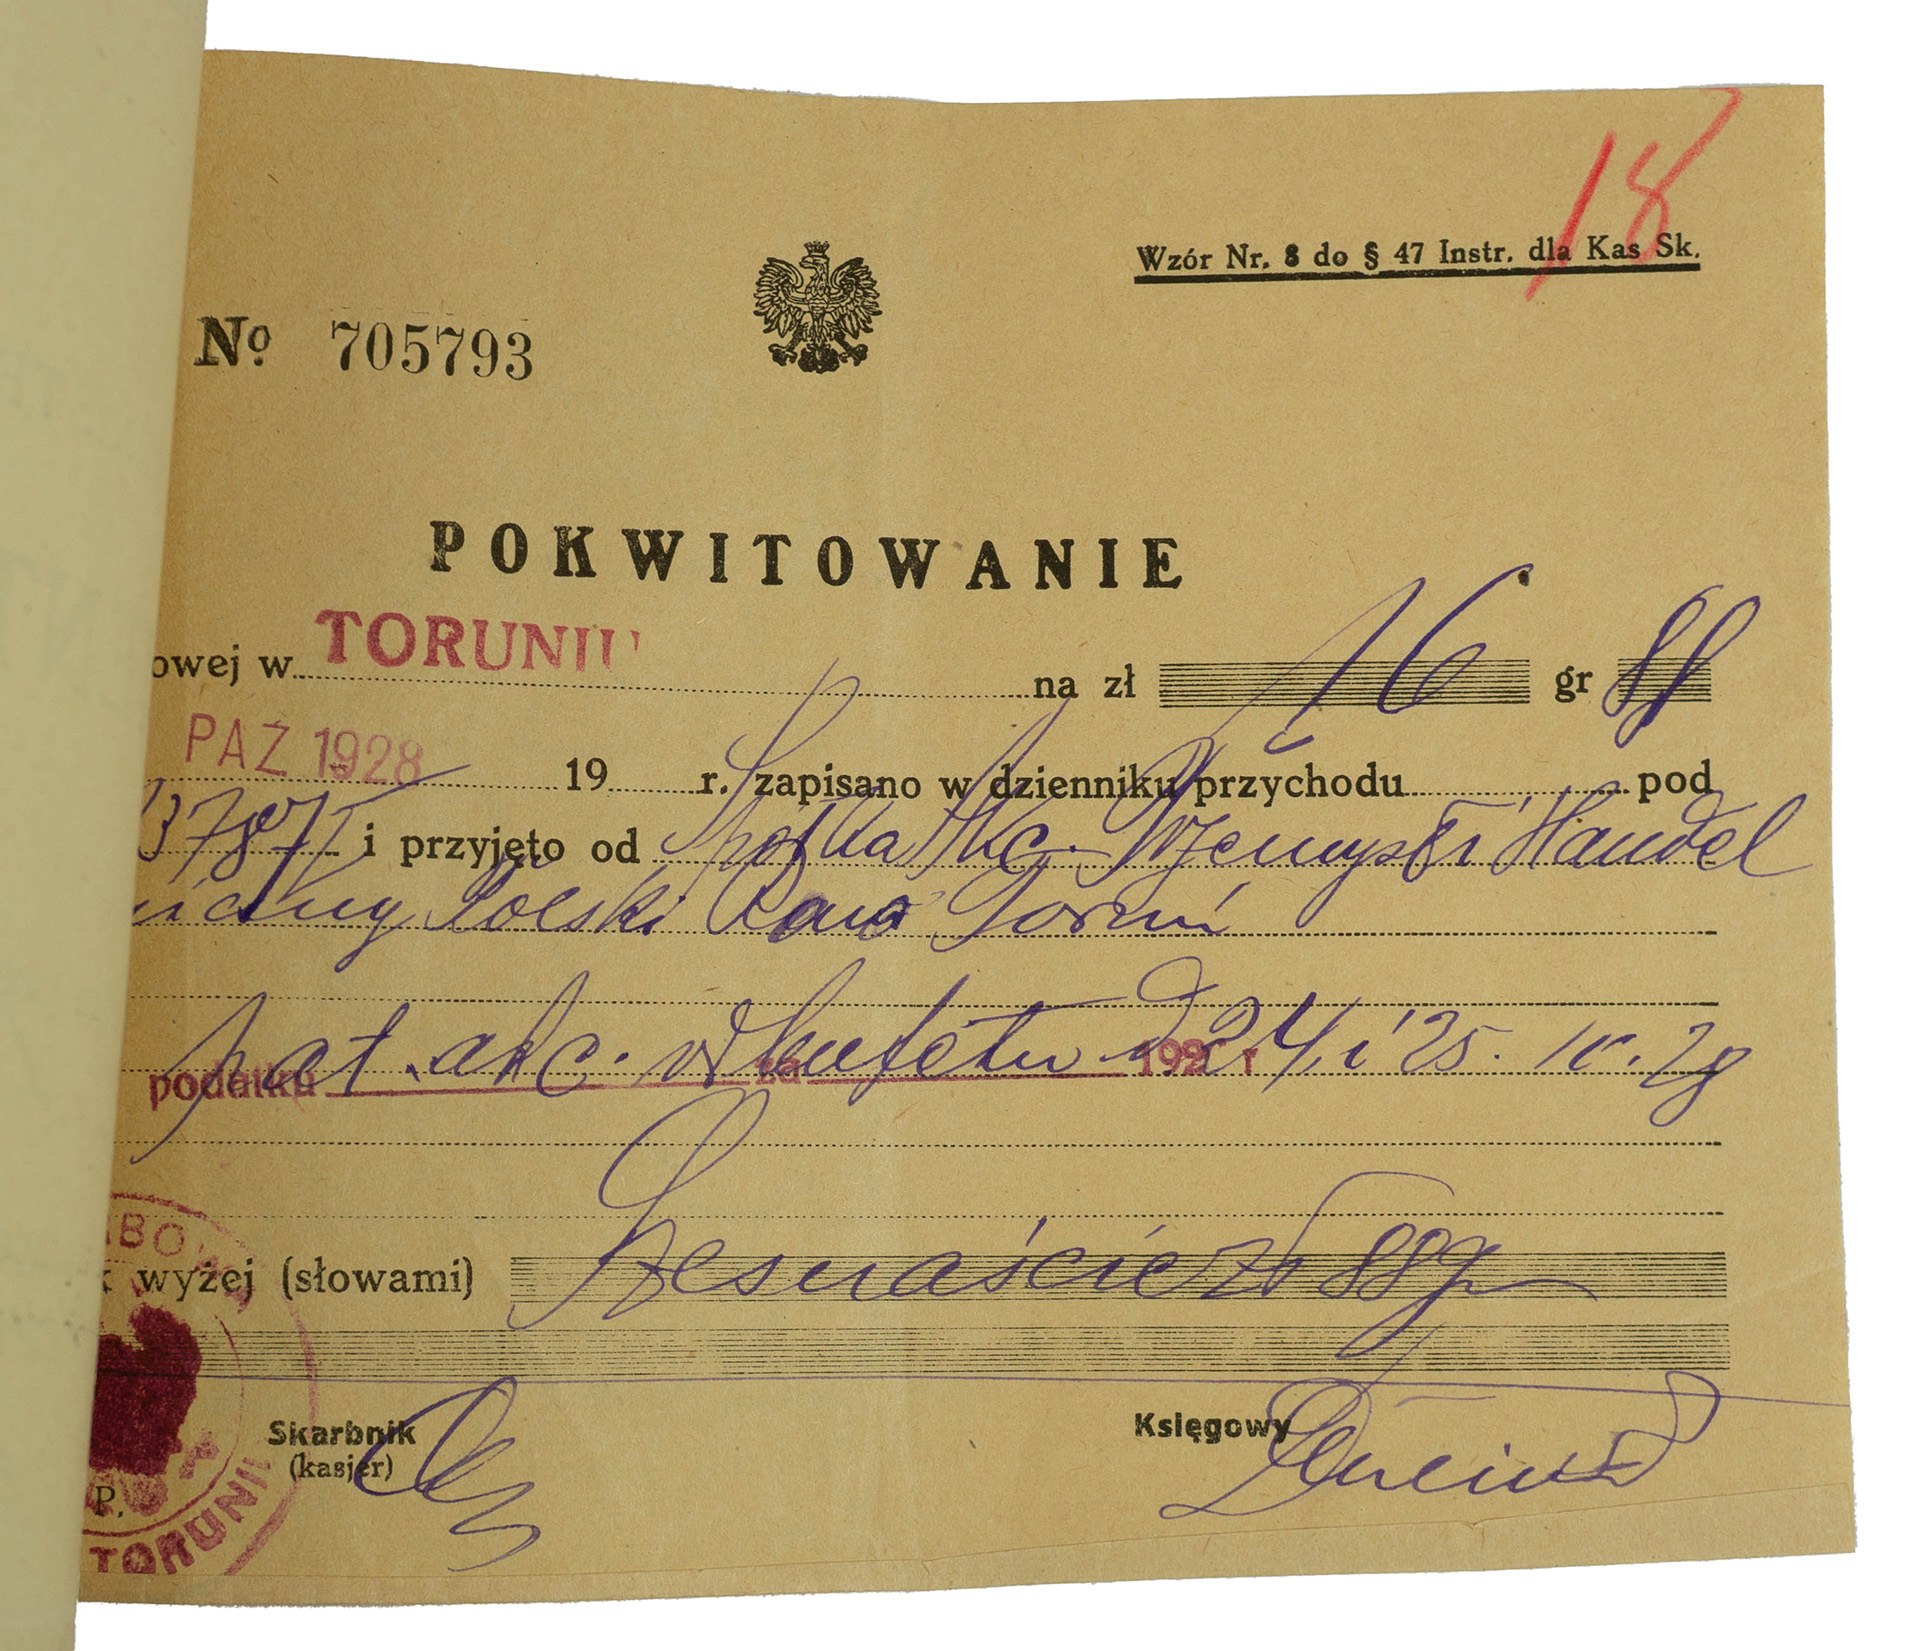 18
Wzór Nr. 8 do § 47 Instr. dla Kas Sk.
No. 705793
POKWITOWANIE
owej w TORUNIU na zł 16 gr 88
PAZ 1928 19 r. zapisano w dzienniku przychodu pod
i przyjęto od Spółka Akc. Przemysł i Handel
Polski Toruń
podatku za 192 r
pat. akc. d 24 i 25.
wyżej (słowami) Szesnaście zł 88 g
Skarbnik
(kasjer)
Księgowy
P.
TORUNIU